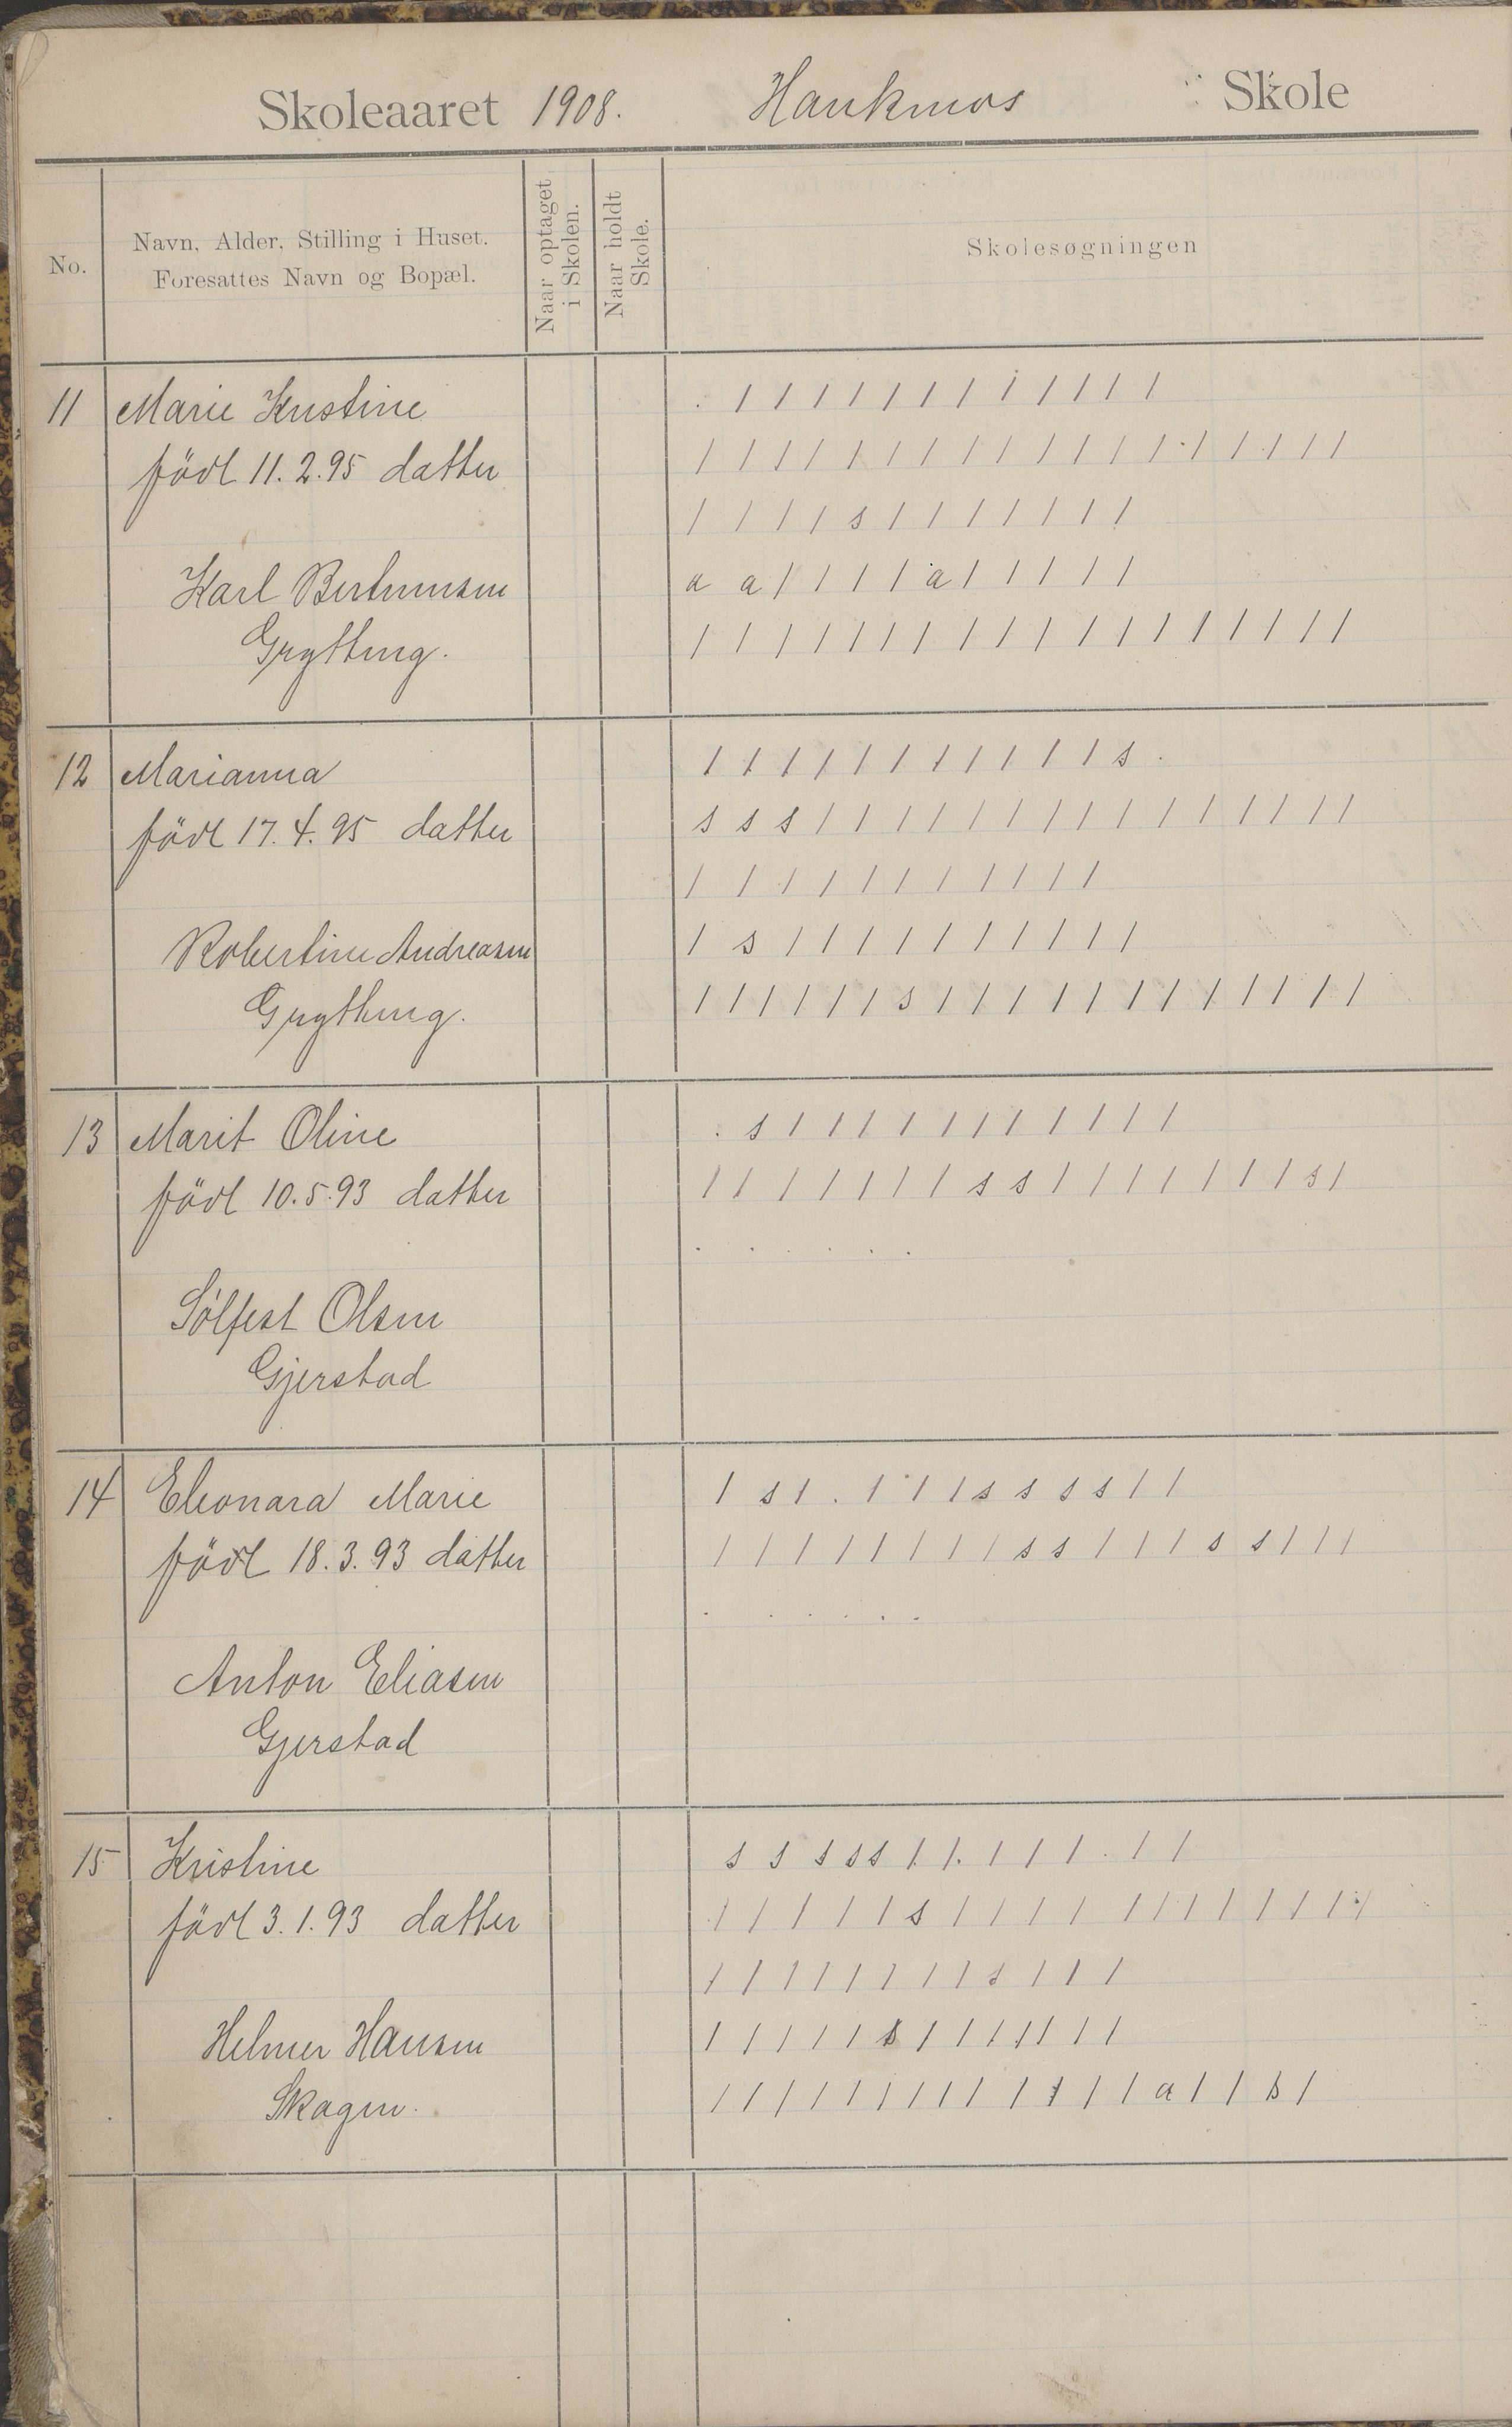 Skoleaaret 1908. Haukmos Skole
No.
Navn, Alder, Stilling i Huset.
Foresattes Navn og Bopæl.
Naar optaget
i Skolen.
Naar holdt
Skole.
Skolesøgningen
11 Marie Kristine . / / / / / / / / / / / /
født 11.2.95 datter / / / / / / / / / / / / / / / / / /
/ / / / s / / / / / / /
Karl Bertinusen a a / / / / a / / / / /
Grytting. / / / / / / / / / / / / / / / / / /
12 Marianna / / / / / / / / / / / s .
født 17.4.95 datter s s s / / / / / / / / / / / / / / /
/ / / / / / / / / / /
Robertine Andreasen / s / / / / / / / / / /
Grytting. / / / / / / s / / / / / / / / / / / /
13 Marit Oline . s / / / / / / / / / / /
født 10.5.93 datter / / / / / / / s s / / / / / / / s /
. . . . . .
Sölfest Olsen
Gjerstad
14 Eleonara Marie / s / . / / / s s s s / /
født 18.3.93 datter / / / / / / / / s s / / / s s / / /
. . . . . .
Anton Eliasen
Gjerstad
15 Kristine s s s s s / / . / / / . / /
født 3.1.93 datter / / / / / s / / / / / / / / / / /
/ / / / / / / / s / / /
Helmer Hansen / / / / / s / / / / / / /
Skagen. / / / / / / / / / / / / / a / / s /